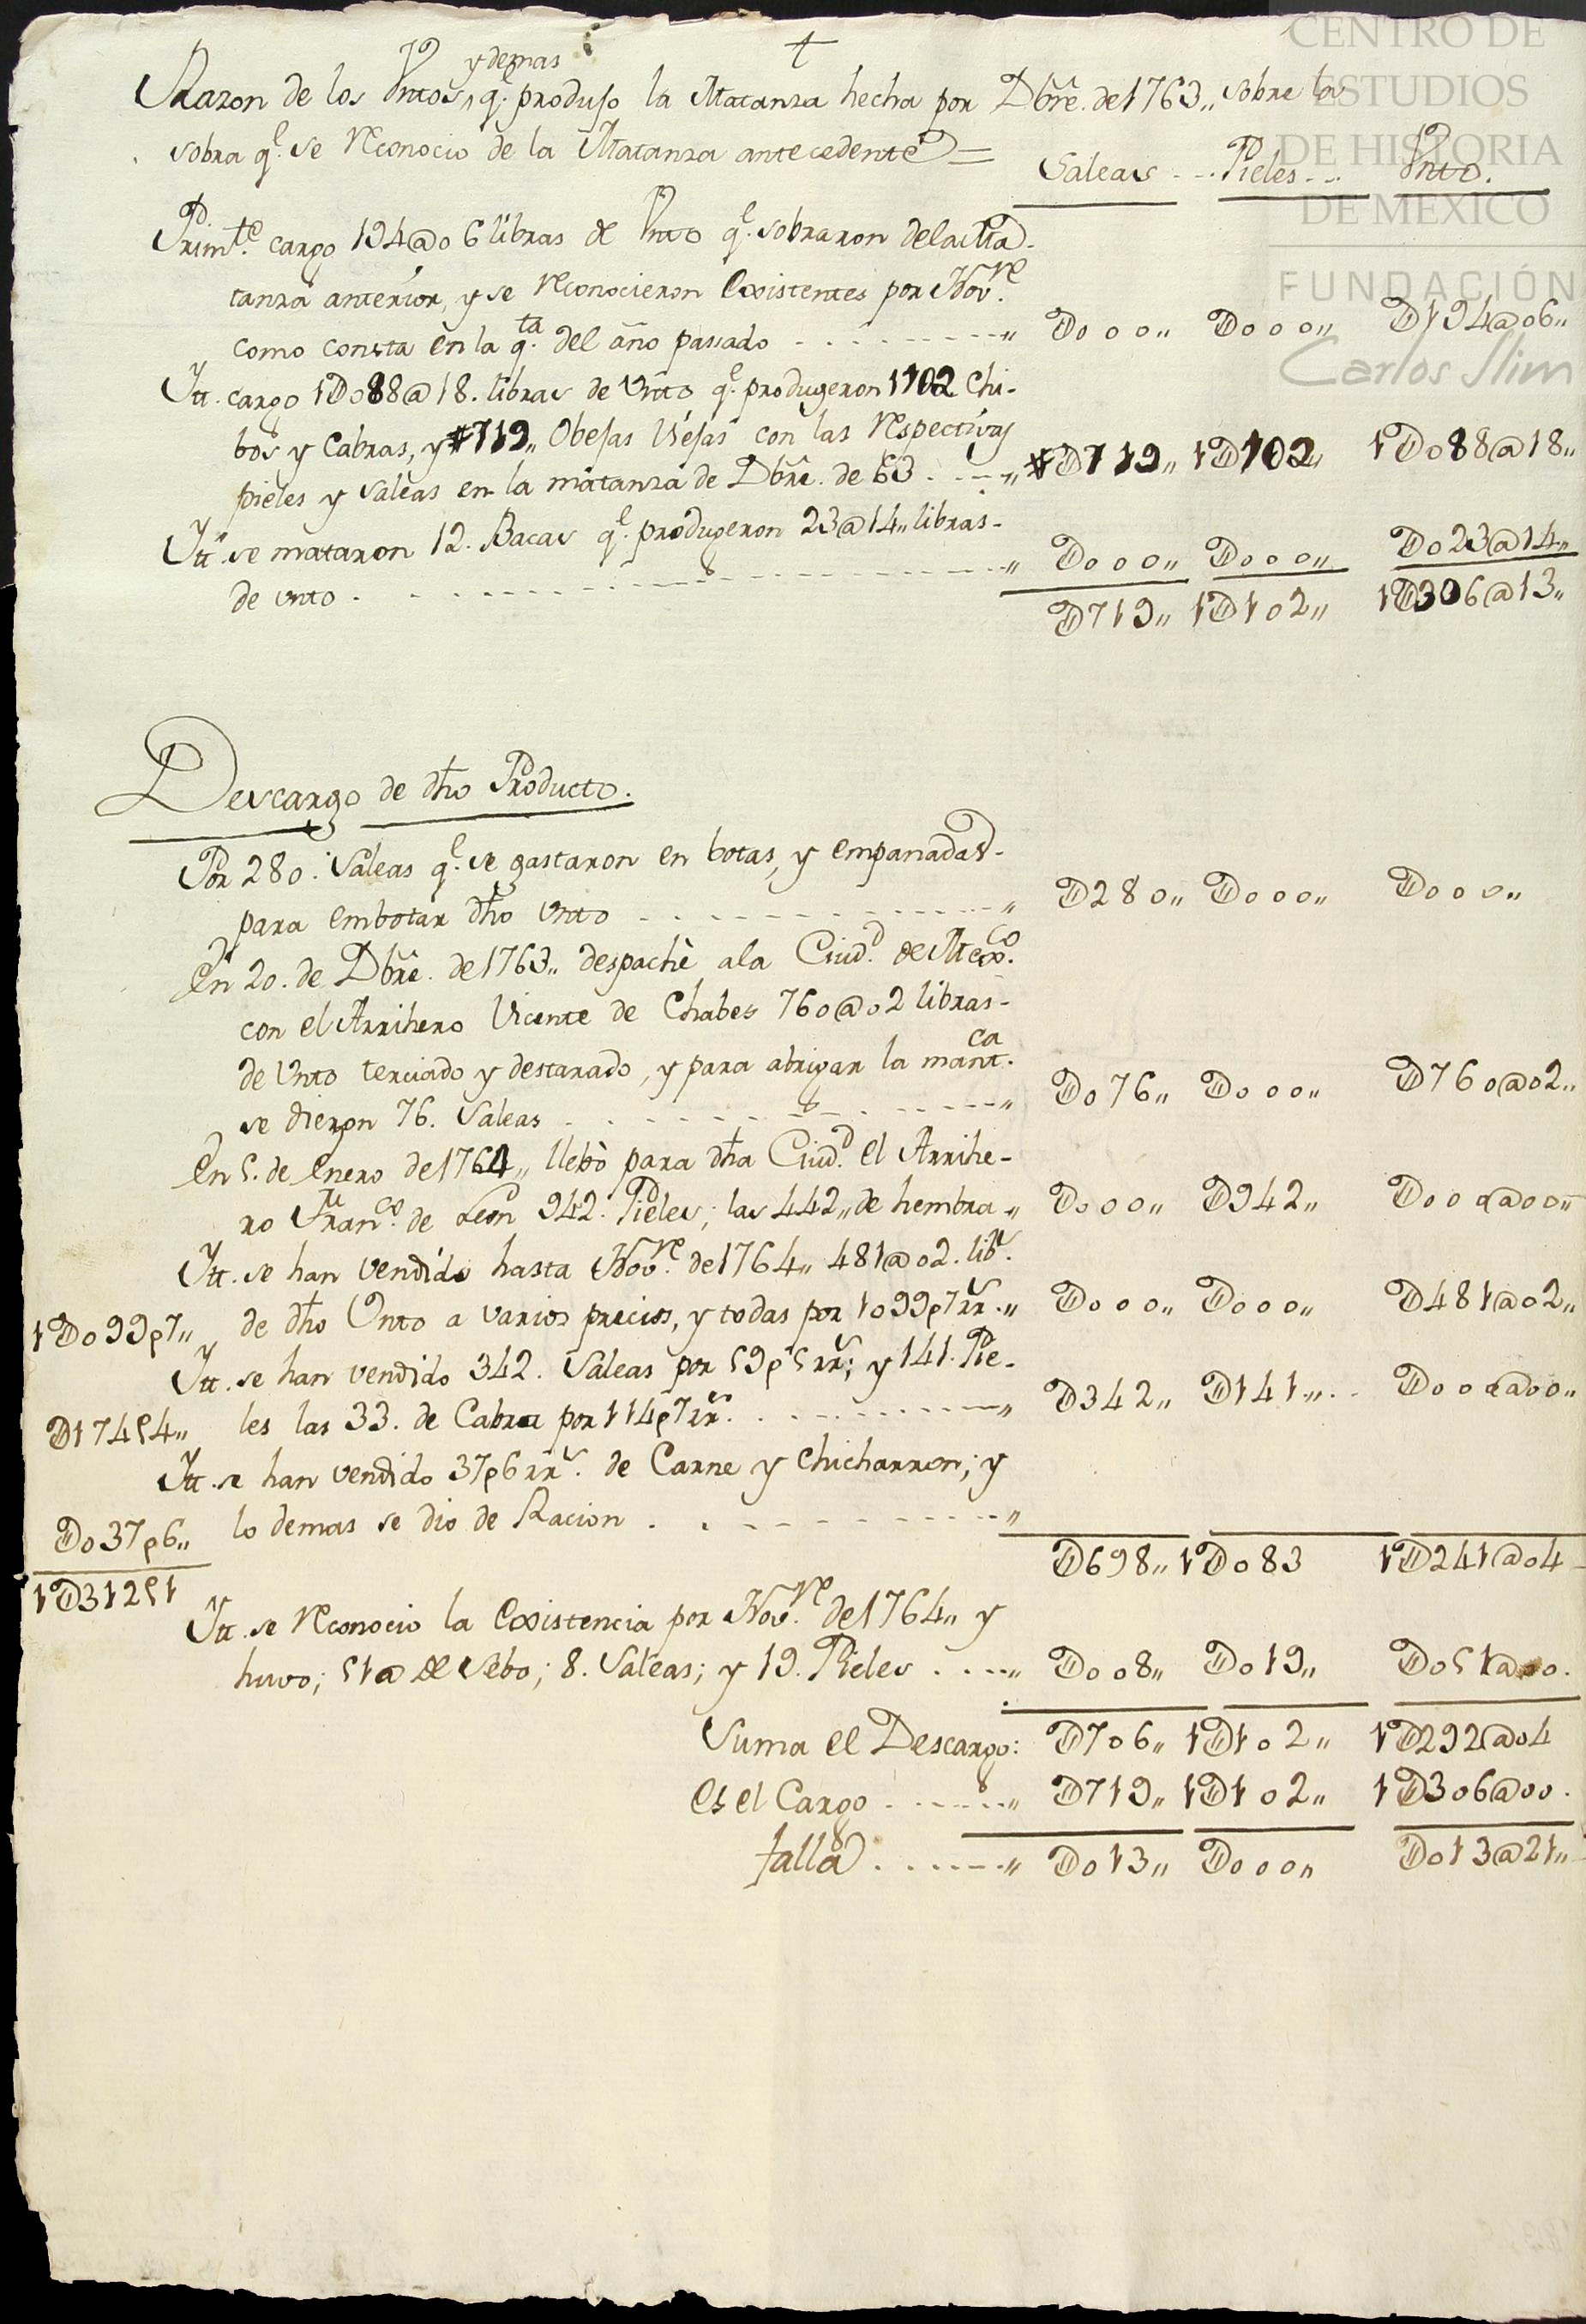 CENTRO DE
ESTUDIOS
DE HISTORIA
DE MEXICO
FUNDACIÓN
Carlos Slim
ydemas
Razon de los Vntos, q.e produjo la Matanza hecha por Dbre. de 1763,, sobre la
sobra q.e se reconocio de la Matanza antecedente =
Saleas - - - Pieles - - - Vnto.
Prim.te cargo 194@06 libras de Vnto q.e sobraron dela Ma-
tanza anterior, y se reconocieron Existentes por Nov.re
como consta en la q.ta del año passado - - - - - - - - ,, D000,, D000,, D194@06,,
Ytt. cargo 1D088@18. libras de Vnto q.e produgeron 1102 Chi-
bos y Cabras, y #719,, Obejas Viejas con las respectivas
pieles y saleas en la matanza de Dbre. de 63 . - - ,, #D719,, 1D102,, 1D088@18,,
Ytt. se mataron 12. Bacas q.e produgeron 23@14,, libras-
de vnto . - - - - - - - - - - - - ,, D000,, D000,, D023@14,,
D719,, 1D102,, 1D306@13,,
Descargo de dho Producto.
Por 280. Saleas q.e se gastaron en botas, y empanadas-
para embotar dho Vnto - - - - - - - - - - ,, D280,, D000,, D000,,
En 20. de Dbre. de 1763,, despachè ala Ciud.d de Mex.co
con el Arrihero Vicente de Chabes 760@02 libras-
de Vnto terciado y destarado, y para abrigar la mant.ca
se dieron 76. Saleas . - - - - - - - - ,, D076,, D000,, D760@02,,
En 5. de Enero de 1764,, llebò para dha Ciud.d el Arrihe-
ro Fran.co de Leon 942. Pieles; las 442,, de hembra ,, D000,, D942,, D000@00,,
Ytt. se han vendido hasta Nov.re de 1764,, 481@02. lib.s
1D099p7,, de dho Vnto a varios precios, y todas por 1099p7rr.s ,, D000,, D000,, D481@02,,
Ytt. se han vendido 342. Saleas por 59p5rr.s; y 141. Pie-
D17454,, les las 33. de Cabra por 114p7rr.s . - - - - - - ,, D342,, D141,, . . D000@00,,
Ytt. se han vendido 37p6rr.s de Carne y Chicharron; y
D037p6,, lo demas se dio de Racion . . - - - - - - - - ,,
D698,, 1D083 1D241@04
1D31251
Ytt. se reconocio la Existencia por Nov.re de 1764,, y
huvo; 51@ de Sebo; 8. Saleas; y 19. Pieles . . - - ,, D008,, D019,, D051@00.
Suma el Descargo: D706,, 1D102,, 1D292@04
Es el Cargo - - - - ,, D719,, 1D102,, 1D306@00.
falla . - - - - ,, D013,, D000,, D013@21,,